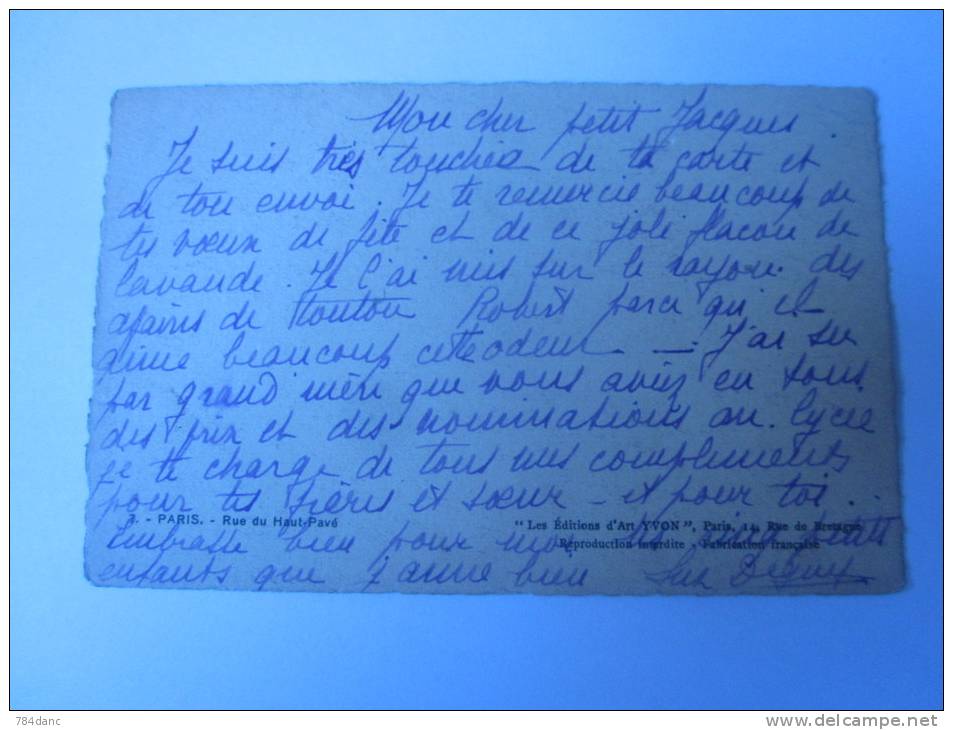 Mon cher petit Jacques.
Je suis très touchée de ta carte et
de ton envoi. Je te remercie beaucoup de
tes vœux de fête et de ce joli flacon de
lavande. Je l'ai mis sur le rayon des
afaires de tonton Robert parce qu'il
aime beaucoup cette odeur — J'ai su
par grand'mère que vous aviez eu tous
des prix et des nominations au lycée
je te charge de tous mes compliments
pour tes frères et sœur - et pour toi.
7. - PARIS. - Rue du Haut-Pavé
"Les Éditions d'Art YVON", Paris, 14, Rue de Bretagne
Reproduction interdite - Fabrication française
Embrasse bien pour moi
enfants que j'aime bien
784danc
www.delcampe.net